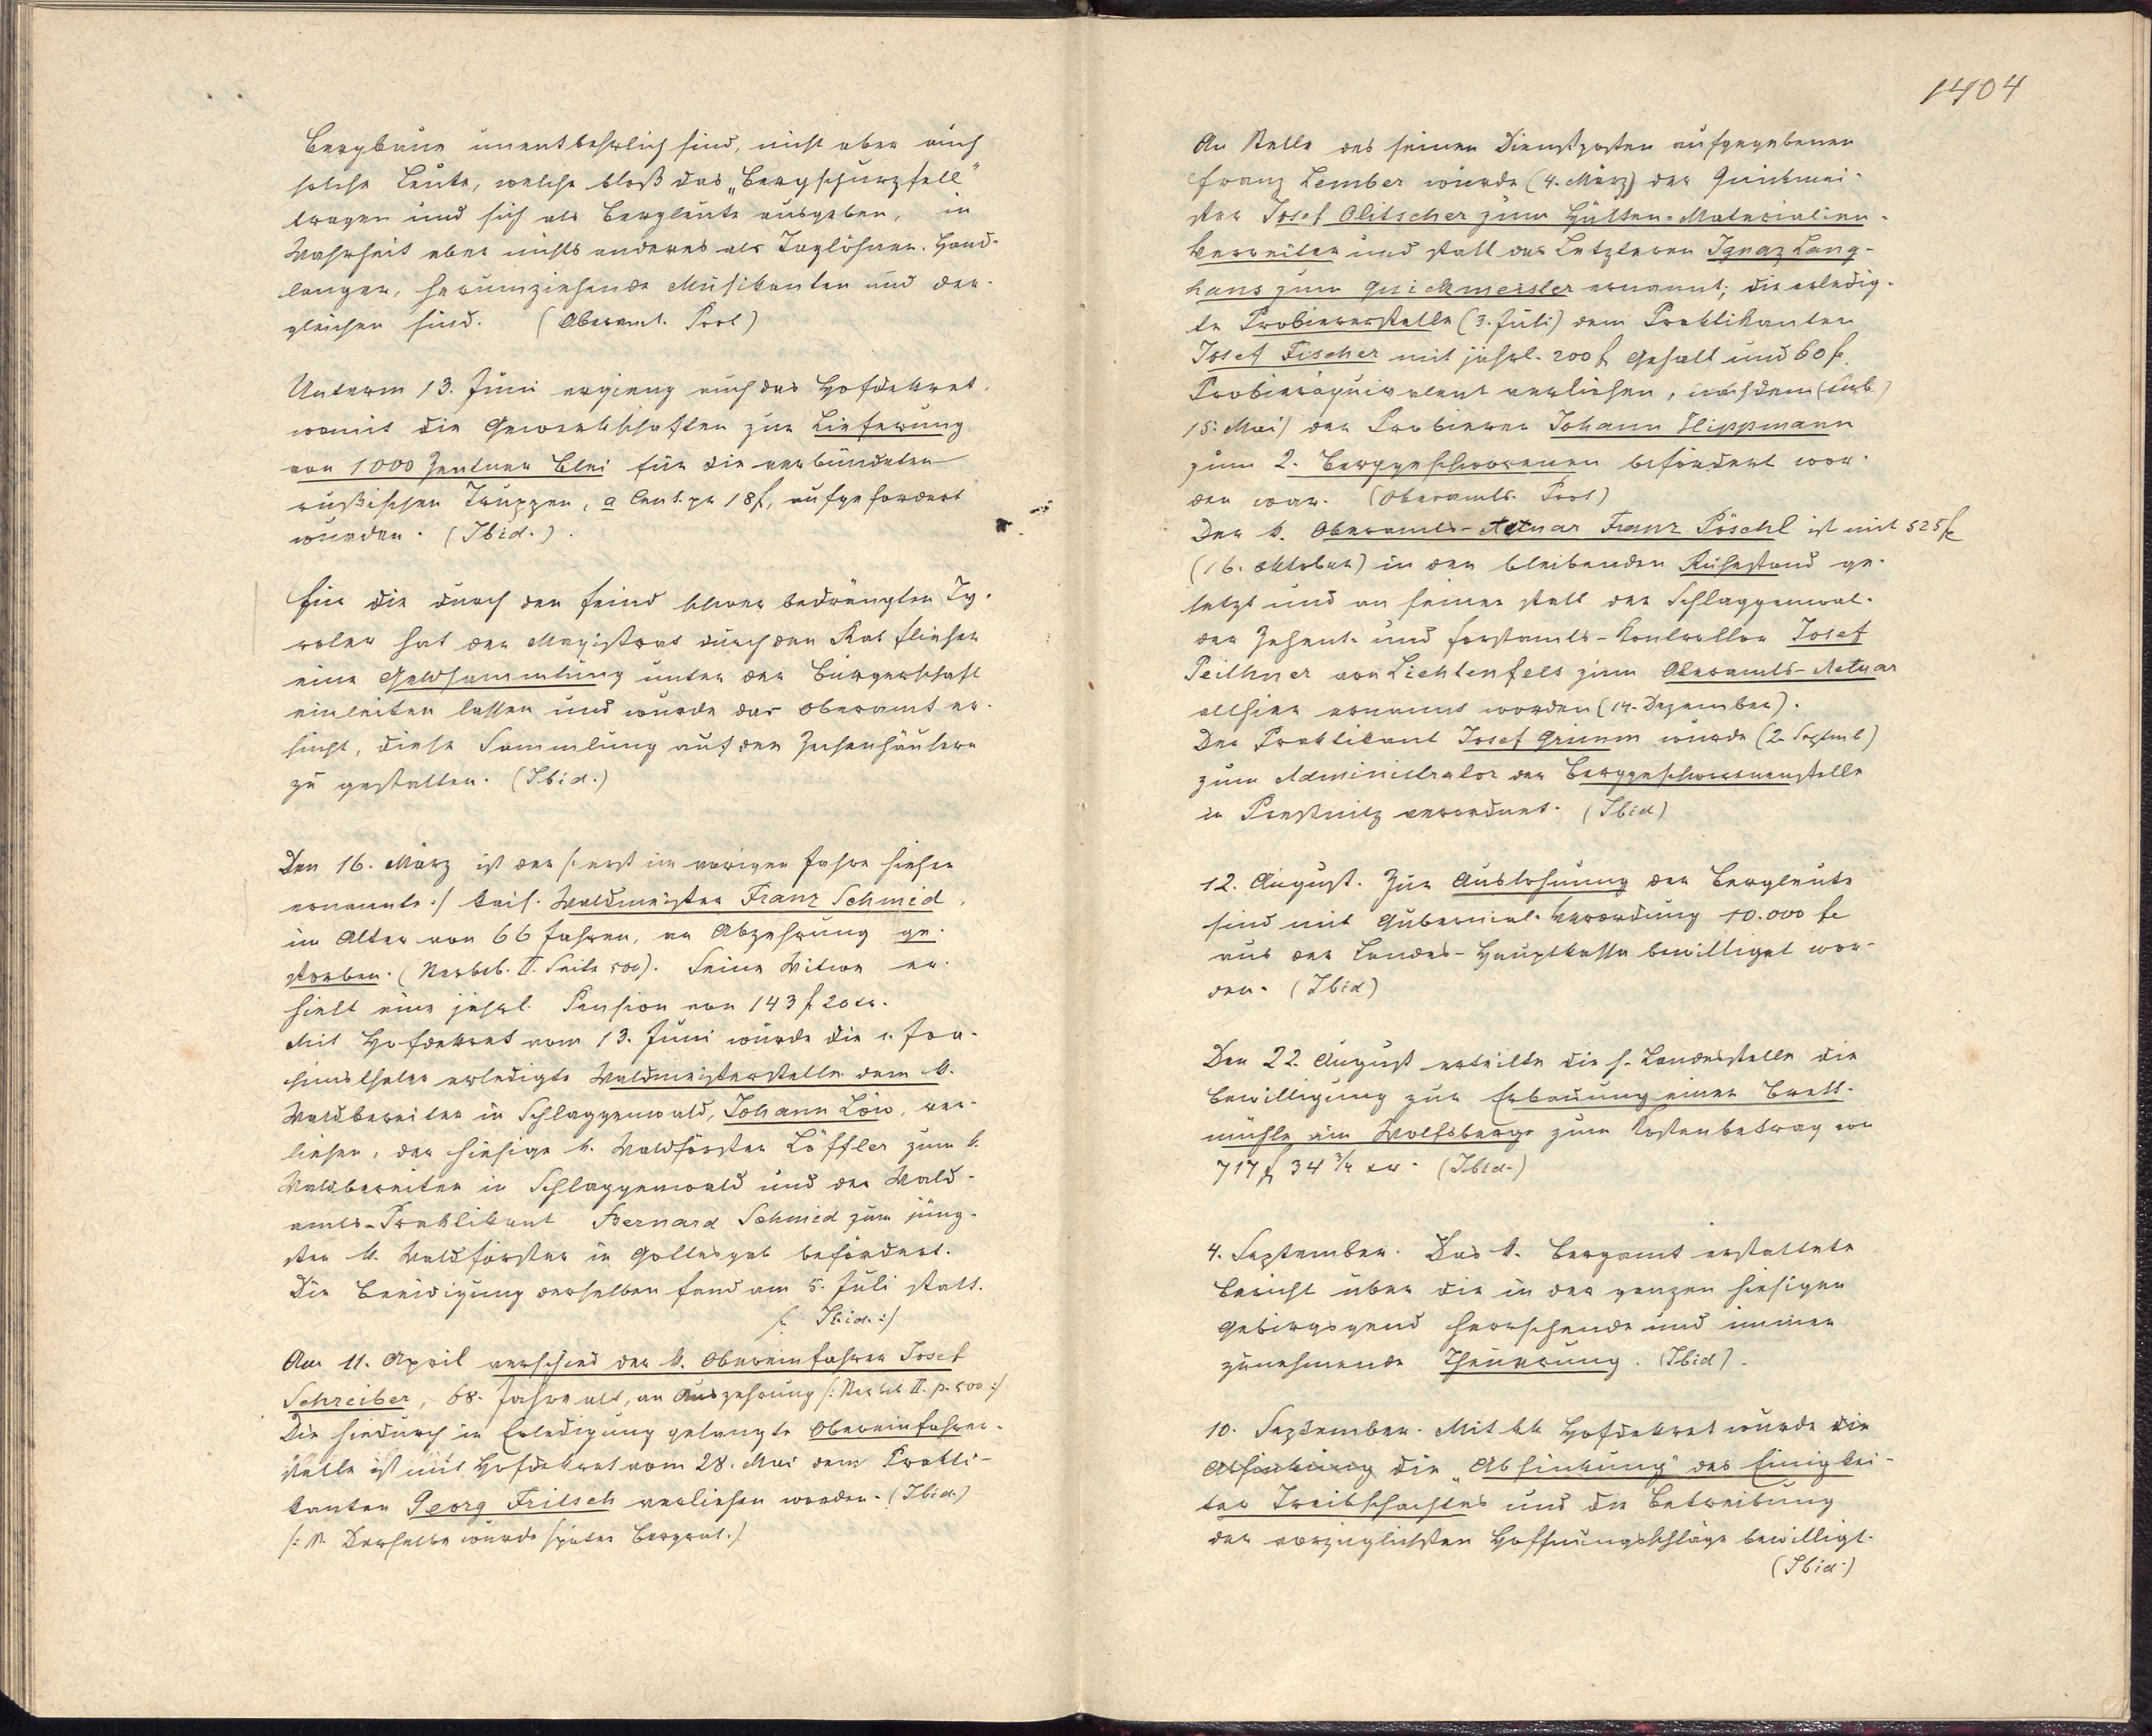 Bergbaue unentbehrlich sind, nicht aber auch
solche Leute, welche bloß das „Bergschurzfell"
tragen und sich als Bergleute ausgeben, in
Wahrheit aber nichts anderes als Taglöhner, Hand-
langer, herumziehende Musikanten und der-
gleichen sind. (Oberamt. Prot)
Unterm 13. Juni ergieng auch das Hofdekret,
womit die Gewerkschaften zur Lieferung
von 1000 Zentner Blei für die verbündeten
rußischen Truppen, a Cent. pr 18 f, aufgefordert
wurden. (Ibid.).
Für die durch den Feind schwer bedrängten Ty-
roler hat der Magistrat durch den Rat fliesen
eine Geldsammlung unter der Bürgerschaft
einleiten lassen und wurde das Oberamt er-
sucht, diese Sammlung auf den Zechenhäusern
zu gestatten. (Ibid.)
Den 16. März ist der /: erst im vorigen Jahre hieher
ernannte :/ kais. Waldmeister Franz Schmid,
im Alter von 66 Jahren, an Abzehrung ge-
storben. (Sterbeb. II. Seite 500). Seine Witwe er-
hielt eine jährl. Pension von 143 f 20 xr.
Mit Hofdekret vom 13. Juni wurde die in Joa-
chimsthaler erledigte Waldmeisterstelle dem k.
Waldbereiter in Schlaggenwald, Johann Löw, ver-
liehen, der hiesige k. Waldförster Löffler zum k.
Waldbereiter in Schlaggenwald und der Wald-
amts-Praktikant Bernard Schmied zum jüng-
sten k. Waldförster in Gottesgab befördert.
Die Beeidigung derselben fand am 5. Juli statt.
/: Ibid. :/
Am 11. April verschied der k. Obereinfahrer Josef
Schreiber, 68. Jahre alt, an Auszehrung /: Sterbeb II. p. 500 :/
Die hiedurch in Erledigung gelangte Obereinfahrer-
stelle ist mit Hofdekret vom 28. Mai dem Prakti-
kanten Georg Fritsch verliehen worden. (Ibid.)
/: N. Derselbe wurde später Bergrat. :/
1404
An Stelle des seinen Dienstposten aufgegebenen
Franz Lember wurde (4. März) der Quickmei-
ster Josef Olitscher zum Hütten-Materialien-
Verreiter und statt des Letzteren Ignaz Lang-
hans zum Quickmeister ernannt; die erledig-
te Probiererstelle (3. Juli) dem Praktikanten
Josef Fischer mit jährl. 200 f Gehalt und 60 f.
Probieräquivalent verliehen, nachdem (sub
15. Mai) der Probierer Johann Hippmann
zum 2. Berggeschworenen befördert wor-
den war. (Oberamts. Prot)
Der k. Oberamts-Actuar Franz Pöschl ist mit 525 f
(16. Oktober) in den bleibenden Ruhestand ge-
setzt und an seiner statt der Schlaggenwal-
der Zehent- und Forstamts-Kontrollor Josef
Peithner von Lichtenfels zum Oberamts-Actuar
allhier ernannt worden (14. Dezember).
Der Praktikant Josef Grimm wurde (2. Septemb)
zum Administrator der Berggeschworenenstelle
in Presßnitz verordnet. (Ibid)
12. August. Zur Auslohnung der Bergleute
sind mit Gubernial-Verordnung 10.000 f
aus der Landes-Hauptkassa bewilligt wor-
den. (Ibid)
Den 22. August erteilte die h. Landesstelle die
Bewilligung zur Erbauung einer Brett-
mühle am Wolfsberge zum Kostenbetrag von
717 f 34 3/4 xr. (Ibid.)
4. September. Das k. Bergamt erstattete
Bericht über die in der ganzen hiesigen
Gebirgsgend herrschende und immer
zunehmende Theuerung. (Ibid).
10. September. Mit kk Hofdekret wurde die
Absinkung die „Absinkung" des Einigkei-
ter Treibschachtes und die Betreibung
der vorzüglichsten Hoffnungsschläge bewilligt.
(Ibid.)